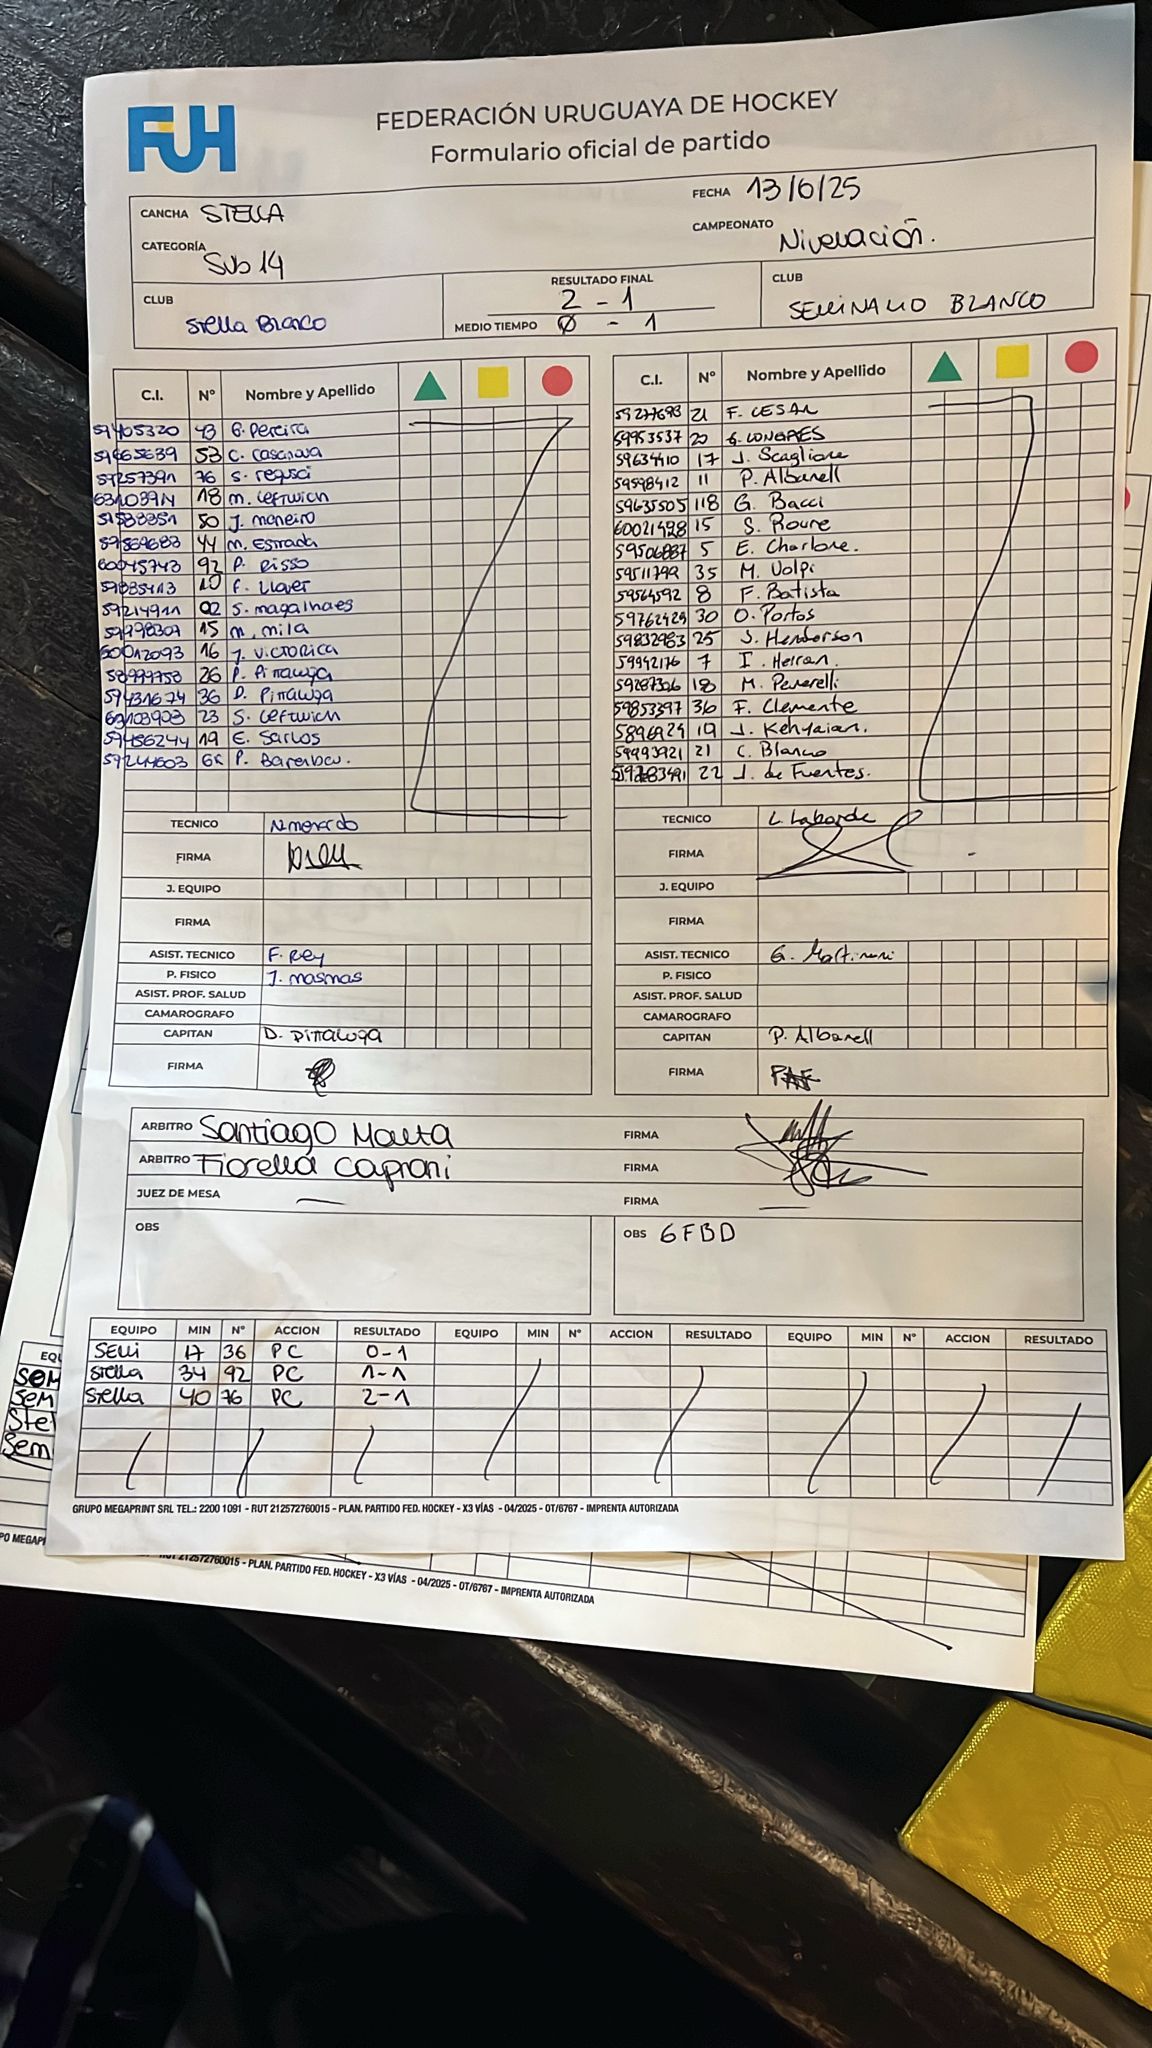 FUH
FEDERACIÓN URUGUAYA DE HOCKEY
Formulario oficial de partido
CANCHA STELLA
FECHA 13/6/25
CATEGORÍA Sub 14
CAMPEONATO Nivelación.
CLUB Stella Blanco
RESULTADO FINAL 2 - 1
MEDIO TIEMPO 0 - 1
CLUB SEMINARIO BLANCO
C.I. Nº Nombre y Apellido
59405320 43 G. Pereira
53 C. Casanova
59257391 76 S. regusci
18 m. Leftwich
50 J. maneiro
59569683 44 m. Estrada
60045743 92 P. Risso
59835413 10 F. Llover
59214911 02 S. magalhaes
59998307 15 m. mila
60012093 16 J. Victorica
26 P. Pittaluga
59431674 36 D. Pittaluga
63103903 23 S. Leftwich
59486244 19 E. Sarlos
59244603 P.
TECNICO N. menardo
FIRMA
J. EQUIPO
FIRMA
ASIST. TECNICO F. Rey
P. FISICO J. masmas
ASIST. PROF. SALUD
CAMAROGRAFO
CAPITAN D. Pittaluga
FIRMA
C.I. Nº Nombre y Apellido
59277693 21 F. CESAR
59953537 20 G. LONGRES
59634410 17 J. Scaglione
59598412 11 P. Albanell
59635505 118 G. Bacci
60021498 15 S. Roure
59506887 5 E. Charlone.
59511799 35 M. Volpi
59564592 8 F. Batista
59762429 30 O. Portos
59832963 25 J. Henderson
59942176 7 I. Herran.
59287326 18 M. Peverelli
59853397 36 F. Clemente
5896924 19 J. Kehyaian.
59993921 21 C. Blanco
22 J. de Fuentes.
TECNICO L. Laborde
FIRMA
J. EQUIPO
FIRMA
ASIST. TECNICO G. Martinini
P. FISICO
ASIST. PROF. SALUD
CAMAROGRAFO
CAPITAN P. Albanell
FIRMA
ARBITRO Santiago Matta FIRMA
ARBITRO Fiorella Caproni FIRMA
JUEZ DE MESA — FIRMA —
OBS
OBS 6FBD
EQUIPO MIN Nº ACCION RESULTADO EQUIPO MIN Nº ACCION RESULTADO EQUIPO MIN Nº ACCION RESULTADO
SEMI 17 36 PC 0-1
Stella 34 92 PC 1-1
Stella 40 76 PC 2-1
GRUPO MEGAPRINT SRL TEL.: 2200 1091 - RUT 212572760015 - PLAN. PARTIDO FED. HOCKEY - X3 VÍAS - 04/2025 - OT/6767 - IMPRENTA AUTORIZADA
EQU
SEM
SEM
Ste
Sem
PO MEGAP
RUT 212572760015 - PLAN. PARTIDO FED. HOCKEY - X3 VÍAS - 04/2025 - OT/6767 - IMPRENTA AUTORIZADA